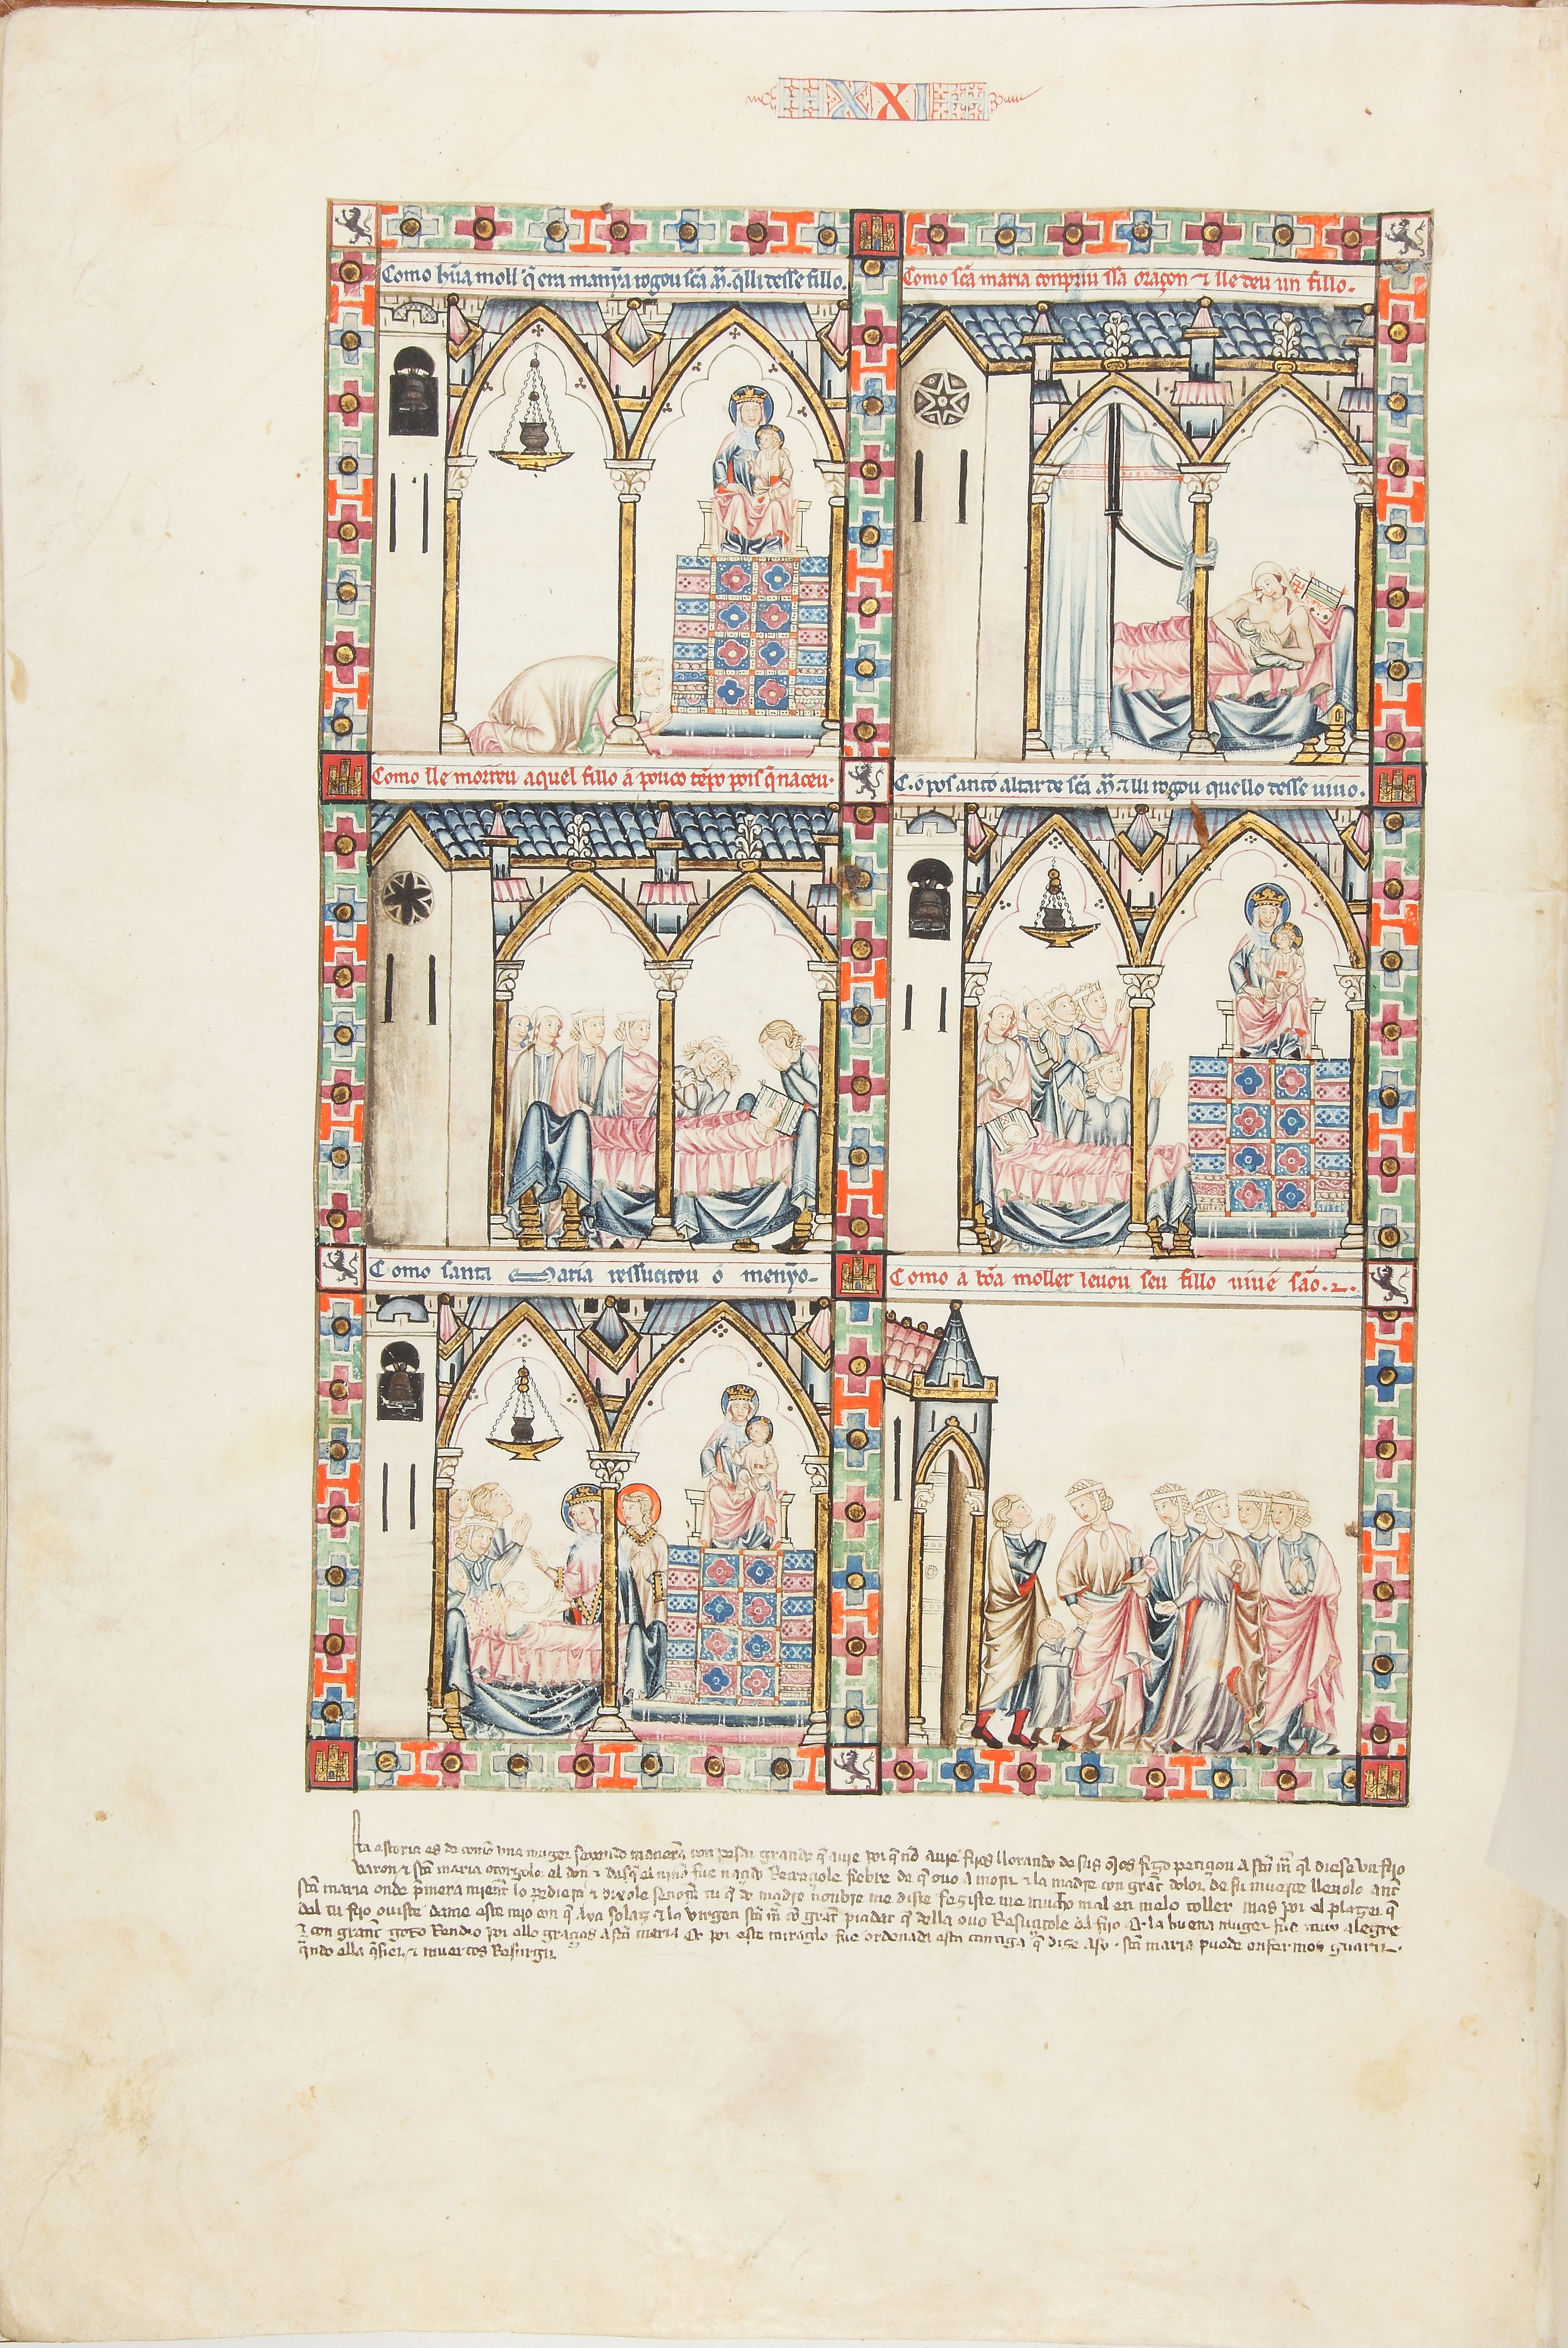 XXI
Como hũa moll̃ q̃ era manỹa rogou sc̃a m̃. q̃lli desse fillo.
Como sc̃a maria conpriu ssa oraçon ⁊ lle deu un fillo.
Como lle morreu aquel fillo á pouco tẽpo pois q̃ naceu.
C. o pos antó altar de sc̃a m̃. ⁊ lli rogou quello desse uiuo.
Como santa Maria ressucitou o menỹo
Como á bõa moller leuou seu fillo uiué são.
sta estoria es de como una muger seyendo maniera con pesar grande q̃ auie por q̃ nõ auie fijos llorando de sus ojos fizo peticiou a sc̃a m̃ q̃l diese un fijo
varon ⁊ sc̃a maria otorgole el don ⁊ dasq̃ el niño fue naçido Recreçiole fiebre de q̃ ouo a morir ⁊ la madre con grãt dolor de su muerte lleuolo ant
sc̃a maria onde p̃mera mient lo pediera ⁊ dixole señora tu q̃ de madre nonbre me diste feziste me mucho mal en melo toller mas por el plazer q̃
del tu fijo ouiste dame este mio con q̃ aya solaz ⁊ la virgen sc̃a m̃ cõ grãt piadat q̃ della ouo Resuçitole el fijo ⁊ la buena muger fue muy alegre
⁊ con grant gozo Rendio por ello graçias a sc̃a maria ⁊ por este miraglo fue ordenada esta cantiga q̃ dize asy. sc̃a maria puede enfermos guarir.
q̃ndo ella q̃sier, ⁊ muertos Resurgir